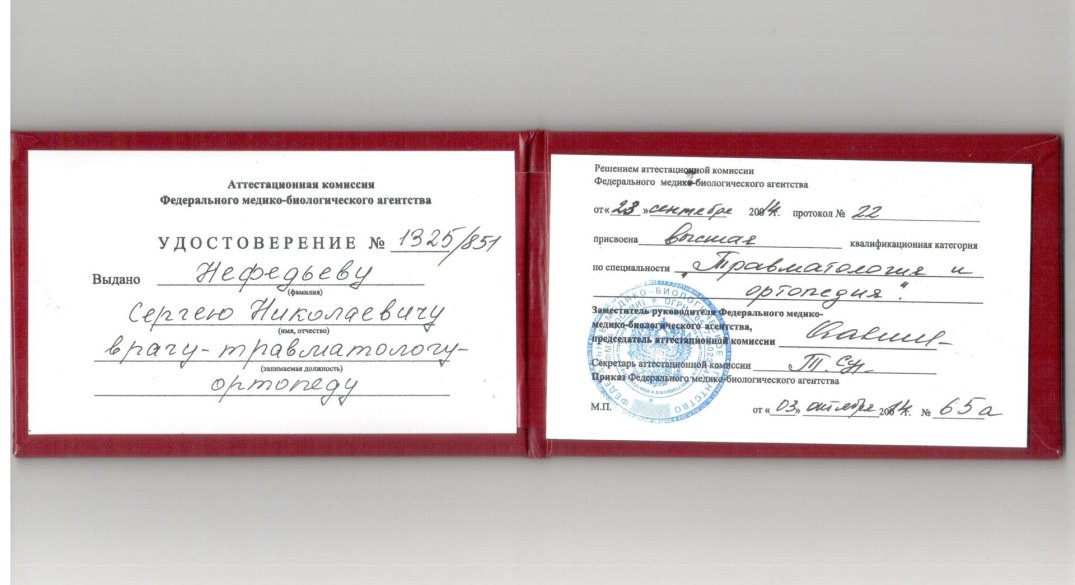 Аттестационная комиссия
Федерального медико-биологического агентства
УДОСТОВЕРЕНИЕ № 1325/851
Выдано Нефедьеву
(фамилия)
Сергею Николаевичу
(имя, отчество)
врачу-травматологу-
(занимаемая должность)
ортопеду
Решением аттестационной комиссии
Федерального медико-биологического агентства
от « 23 » сентября 2014г. протокол № 22
присвоена высшая квалификационная категория
по специальности „Травматология и
ортопедия".
Заместитель руководителя Федерального медико-
медико-биологического агентства,
председатель аттестационной комиссии
Секретарь аттестационной комиссии
Приказ Федерального медико-биологического агентства
М.П. от « 03 » октября 2014г. № 65а